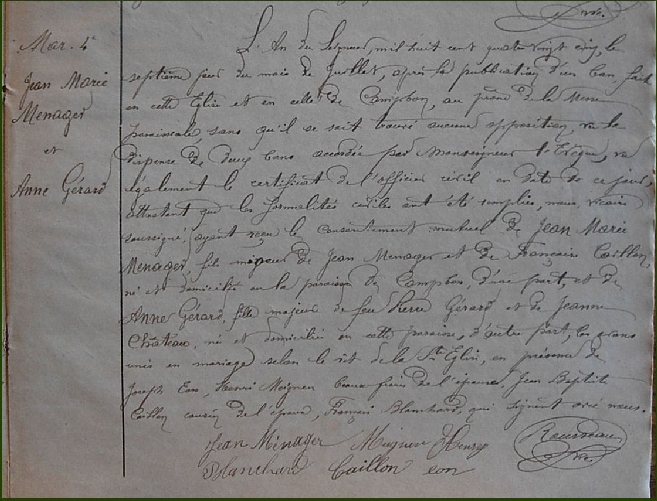 vic.
Mar. 4e
Jean Marie
Menager
et
Anne Gérard
L'An du Seigneur, mil huit cent quatre vingt cinq le
septième jour du mois de Juillet, après la publication d'un ban fait
en cette Eglise et en celle de Campbon, au prône de la Messe
paroissiale, sans qu'il se soit trouvé aucune opposition, vu la
dispense de deux bans accordée par Monseigneur l'Evêque, vu
également le certificat de l'officier civil en date de ce jour,
attestant que les formalités civiles ont été remplies, nous vicaire
soussigné, ayant reçu le consentement mutuel de Jean Marie
Menager, fils majeur de Jean Menager et de Françoise Caillon,
né et domicilié en la paroisse de Campbon, d'une part, et de
Anne Gérard, fille majeure de feu Pierre Gérard et de Jeanne
Château, née et domiciliée en cette paroisse, d'autre part, les avons
unis en mariage selon le rit de la Ste Eglise, en présence de
Joseph Eon, Henri Moignen beaux frères de l'épouse, Jean Baptiste
Caillon cousin de l'époux, François Blanchard, qui signent avec nous.
Jean Ménager Henry
Blanchard Caillon eon
Rousseau
vic.